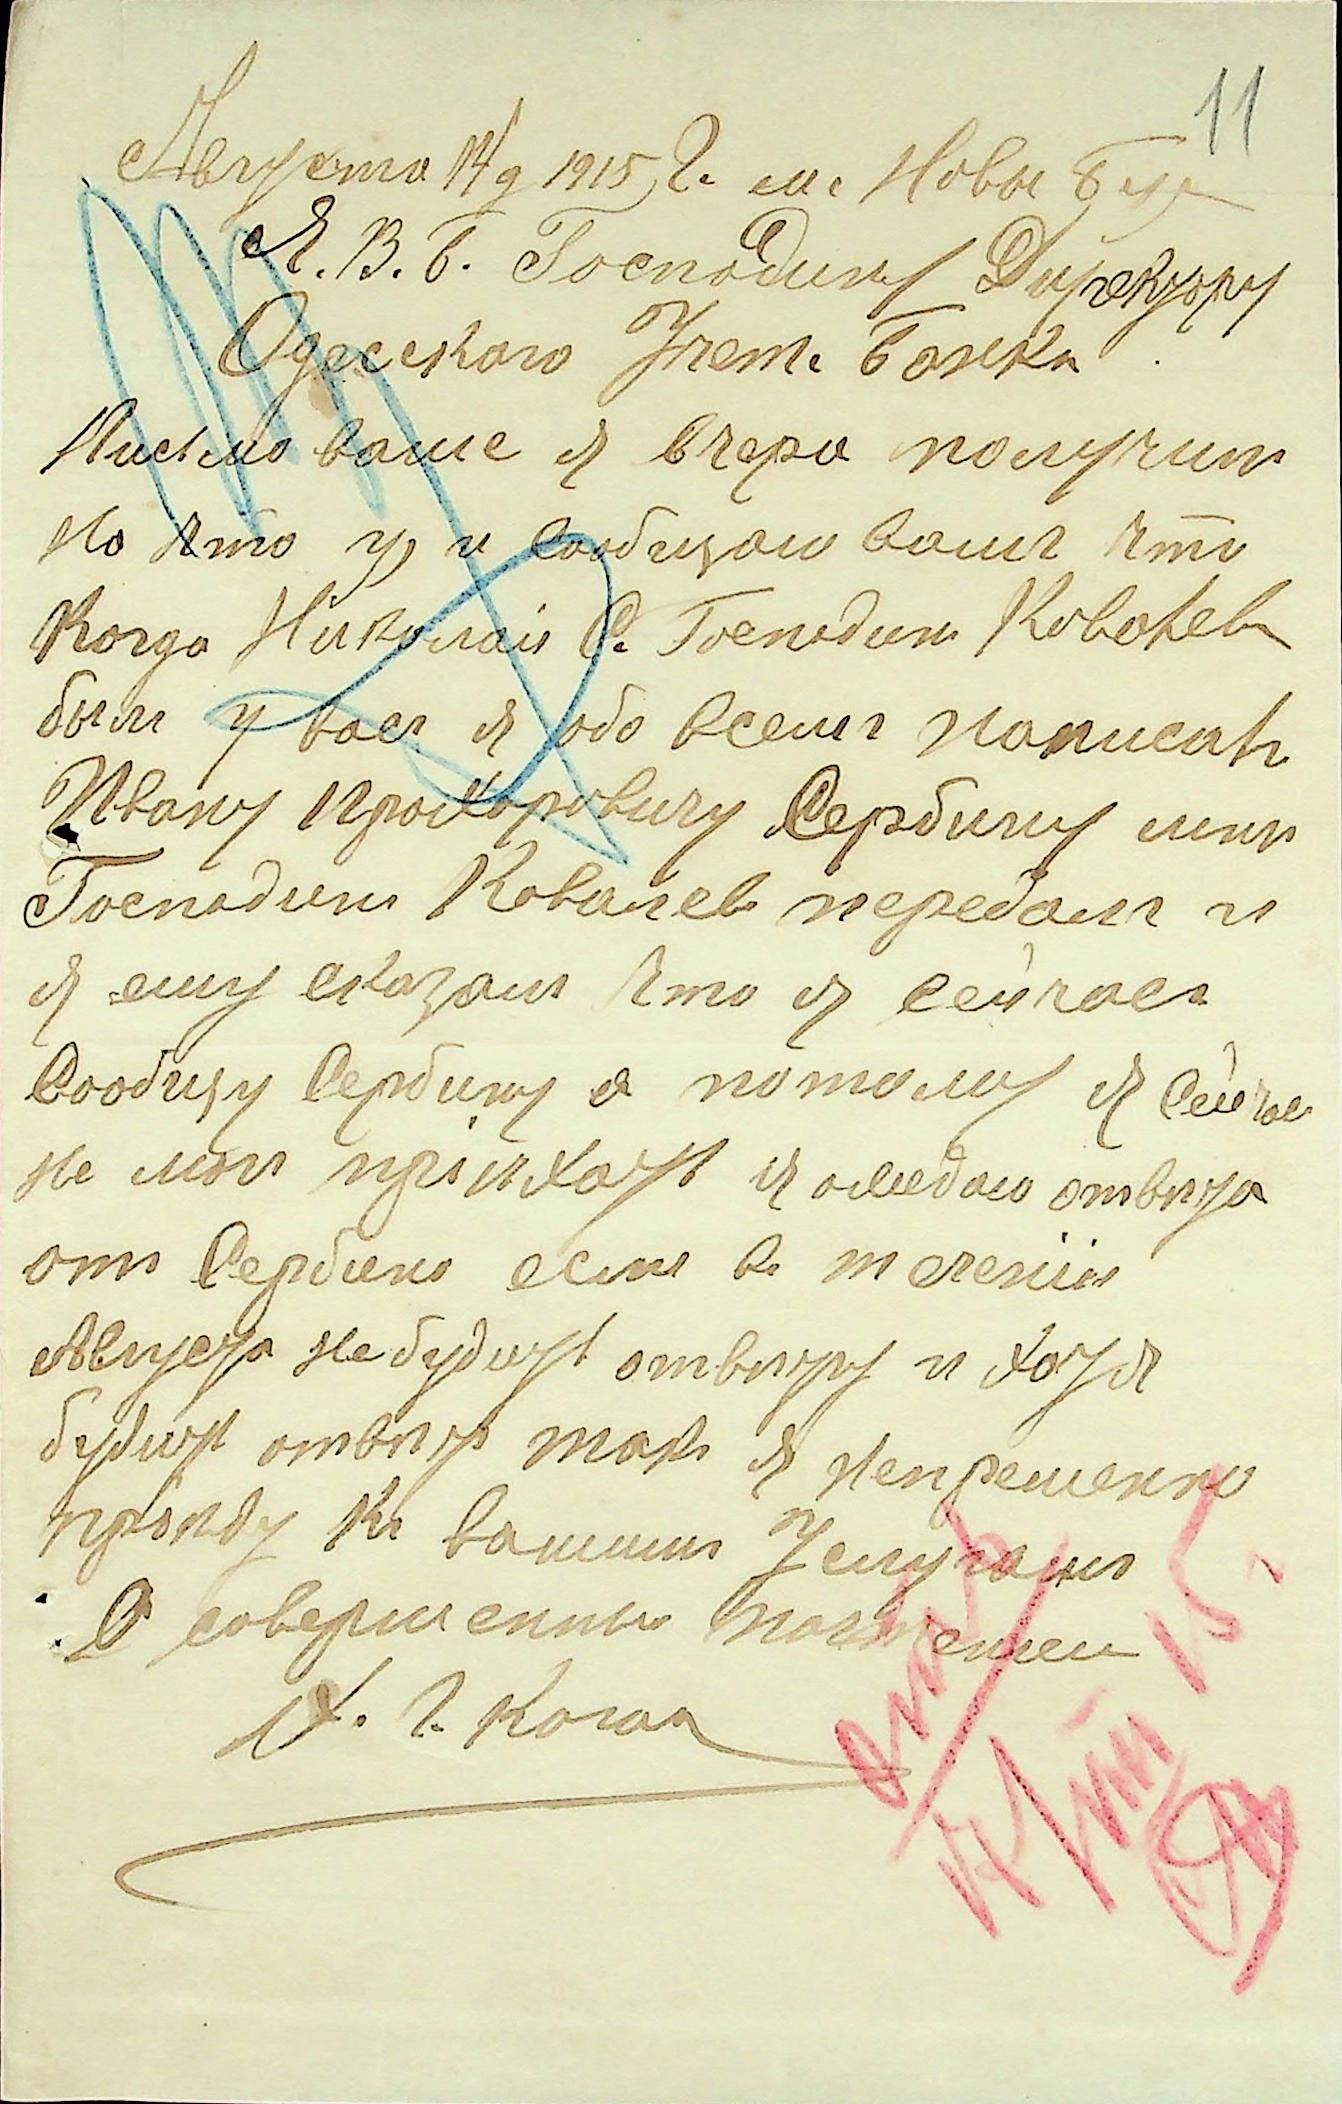 11
Августа 14 д 1915 г. м. Новы Буг
Я. В. Б. Господину Директору
Одесскаго Учет. Банка
Письмо ваше я вчера получил
но что и сообщаю вамъ что
Когда Николай С. Господинъ Ковалевъ
былъ у васъ я обо всемъ написалъ
Ивану Прохоровичу Сербину мнъ
Господинъ Ковалевъ передалъ и
я ему сказалъ что я сейчасъ
Сообщу Сербину а потому я сейчас
не мог пріихать я ожидаю отвита
отъ Сербина если в теченіи
Августа не будитъ отвиту и хотя
будитъ отвитъ такъ я непременно
пріиду Къ вашимъ Услугамъ
С совершенны почтением
Х. Г. Коган